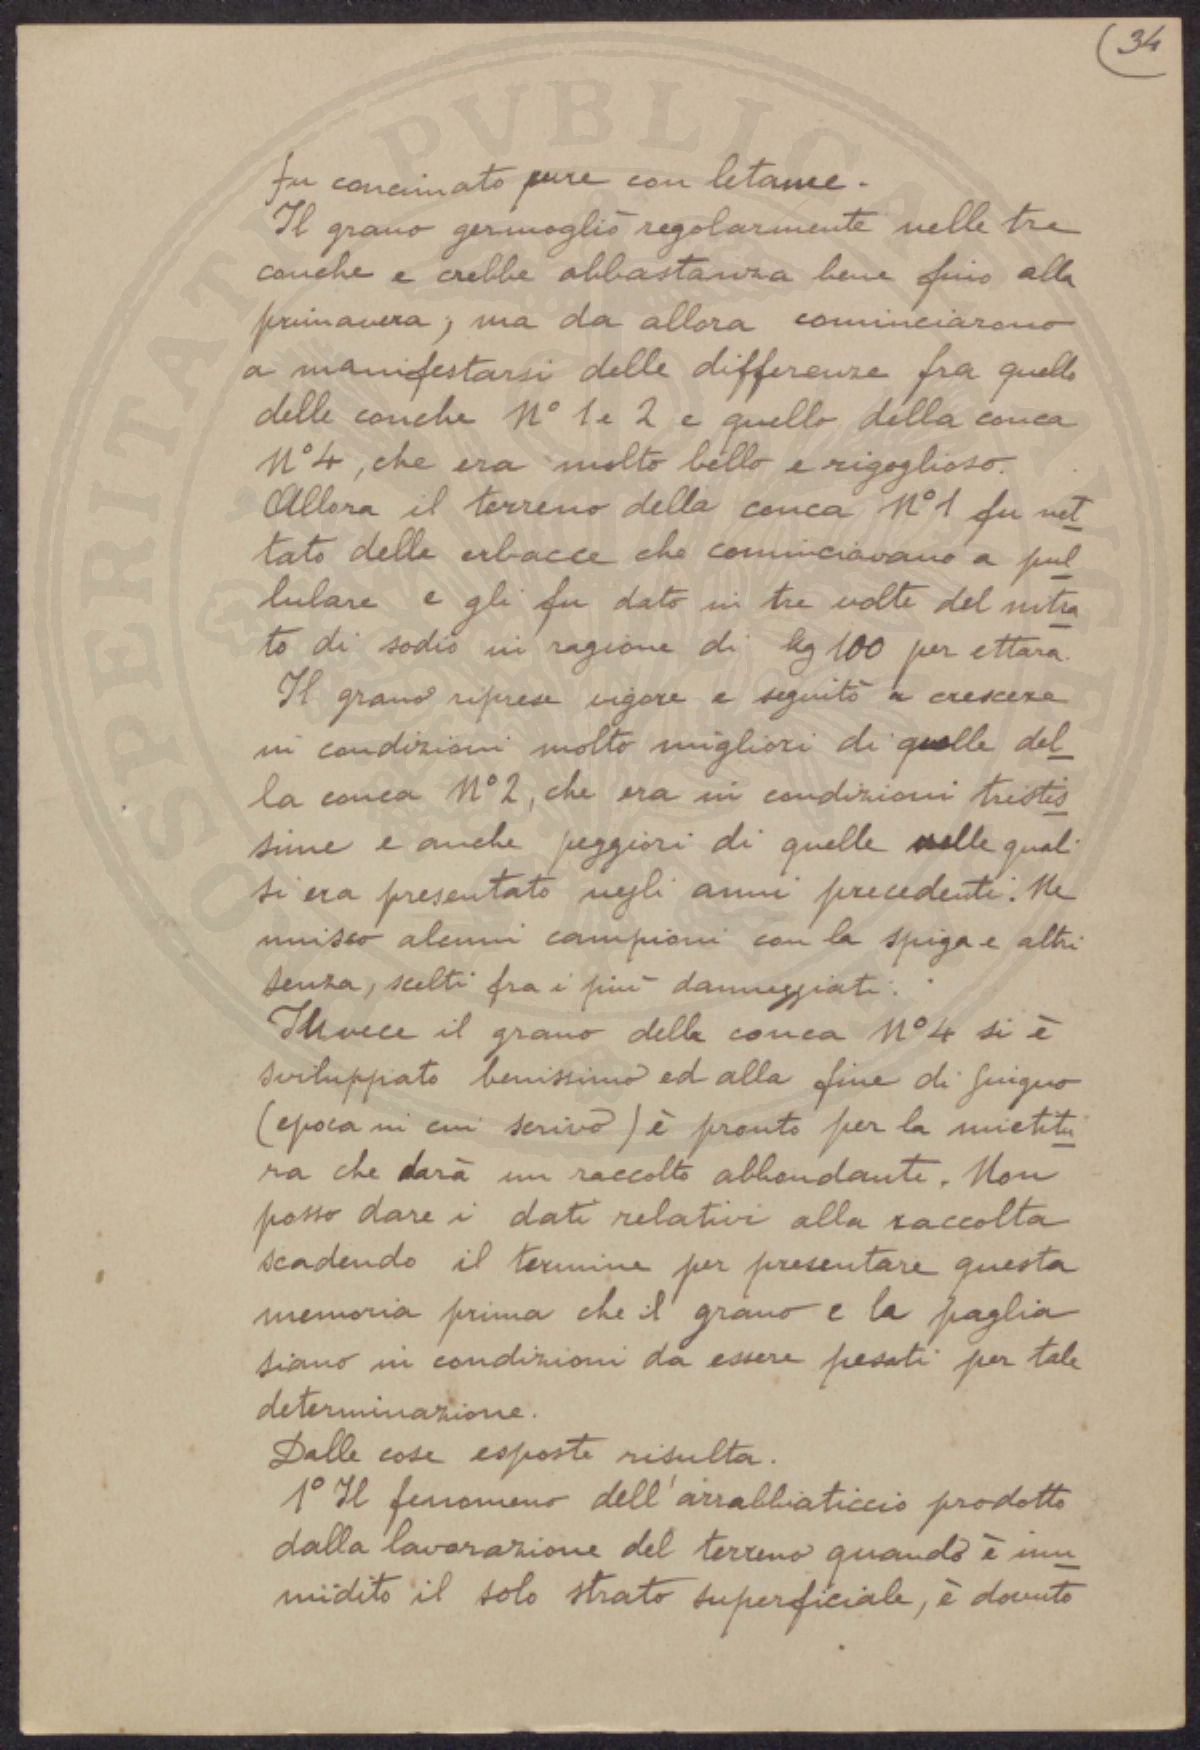 34
fu concimato pure con letame.
Il grano germogliò regolarmente nelle tre
conche e crebbe abbastanza bene fino alla
primavera; ma da allora cominciarono
a manifestarsi delle differenze fra quello
delle conche N° 1 e 2 e quello della conca
N° 4, che era molto bello e rigoglioso.
Allora il terreno della conca N° 1 fu net
tato delle erbacce che cominciavano a pul
lulare e gli fu dato in tre volte del nitra
to di sodio in ragione di kg 100 per ettara.
Il grano riprese vigore e seguitò a crescere
in condizioni molto migliori di quelle del
la conca N° 2, che era in condizioni tristis
sime e anche peggiori di quelle nelle quali
si era presentato negli anni precedenti. Ne
unisco alcuni campioni con la spiga e altri
senza, scelti fra i più danneggiati.
Invece il grano della conca N° 4 si è
sviluppato benissimo ed alla fine di giugno
(epoca in cui scrivo) è pronto per la mietitu
ra che darà un raccolto abbondante. Non
posso dare i dati relativi alla raccolta
scadendo il termine per presentare questa
memoria prima che il grano e la paglia
siano in condizioni da essere pesati per tale
determinazione.
Dalle cose esposte risulta.
1° Il fenomeno dell'arrabbiaticcio prodotto
dalla lavorazione del terreno quando è inu
midito il solo strato superficiale, è dovuto